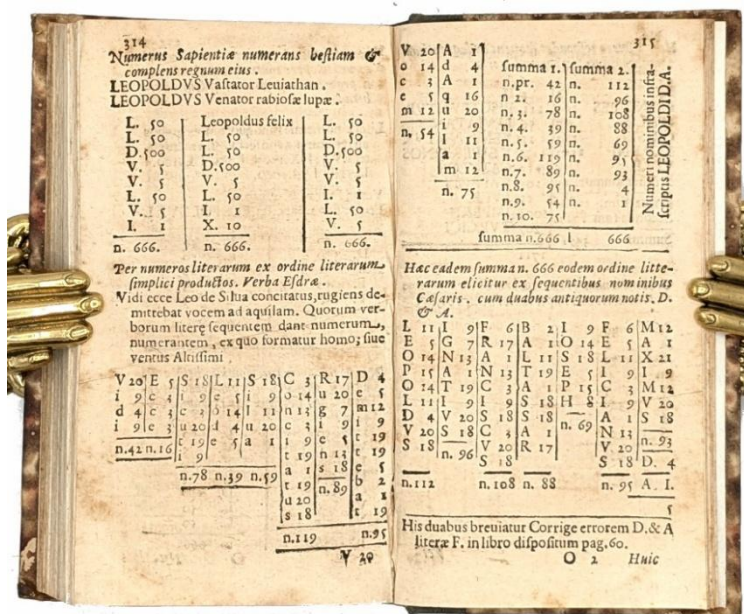 314
Numerus Sapientiæ numerans beſtiam &
complens regnum eius .
LEOPOLDVS Vaſtator Leuiathan .
LEOPOLDVS Venator rabioſæ lupæ .
L. 50 Leopoldus felix L. 50
L. 50 L. 50 L. 50
D.500 L. 50 D.500
V. 5 D.500 V. 5
V. 5 V. 5 V. 5
L. 50 L. 50 I. 1
V. 5 I. 1 L. 50
I. 1 X. 10 V. 5
n. 666. n. 666. n. 666.
Per numeros literarum ex ordine literarum
ſimplici productos. Verba Eſdræ.
Vidi ecce Leo de Silua concitatus, rugiens de-
mittebat vocem ad aquilam. Quorum ver-
borum literę ſequentem dant numerum,
numerantem, ex quo formatur homo; ſiue
ventus Altiſſimi
V 20 E 5 S 18 L 11 S 18 C 3 R 17 D 4
i 9 c 3 i 9 e 5 i 9 o 14 u 20 e 5
d 4 c 3 c 3 o 14 l 11 n 13 g 7 m 12
i 9 e 5 u 20 d 4 u 20 c 3 i 9 i 9
n.42 n.16 t 19 e 5 a 1 i 9 e 5 t 19
i 9 t 19 n 13 t 19
n.78 n.39 n.59 a 1 s 18 e 5
t 19 n.89 b 2
u 20 a 1
s 18 t 19
n.119 n.95
V 20
315
V 20 A 1
o 14 d 4 ſumma 1. ſumma 2.
c 3 A 1 n.pr. 42 n. 112
e 5 q 16 n 2. 16 n. 96
m 12 u 20 n.3. 78 n. 108
n. 54 i 9 n.4. 39 n. 88
l 11 n.5. 59 n. 69
a 1 n.6. 119 n. 95
m 12 n.7. 89 n. 93
n. 75 n.8. 95 n. 4
n.9. 54 n. 1
n. 10. 75
ſumma n.666 666
Numeri nominibus infra-
ſcriptis LEOPOLDI D.A.
Hæc eadem ſumma n. 666 eodem ordine litte-
rarum elicitur ex ſequentibus nominibus
Cæſaris . cum duabus antiquorum notis. D.
& A.
L 11 I 9 F 6 B 2 I 9 F 6 M 12
E 5 G 7 R 17 A 1 O 14 E 5 A 1
O 14 N 13 A 1 L 11 S 18 L 11 X 21
P 15 A 1 N 13 T 19 E 5 I 9 I 9
O 14 T 19 C 3 A 1 P 15 C 3 M 12
L 11 I 9 I 9 S 18 H 8 I 9 V 20
D 4 V 20 S 18 S 18 n. 69 A 1 S 18
V 20 S 18 C 3 A 1 N 13 n. 93
S 18 n. 96 V 20 R 17 V 20
S 18 S 18 D. 4
n.112 n.108 n. 88 n. 95 A. 1.
5
His duabus breuiatur Corrige errorem D. & A
literæ F. in libro diſpoſitum pag. 60.
O 2 Huic